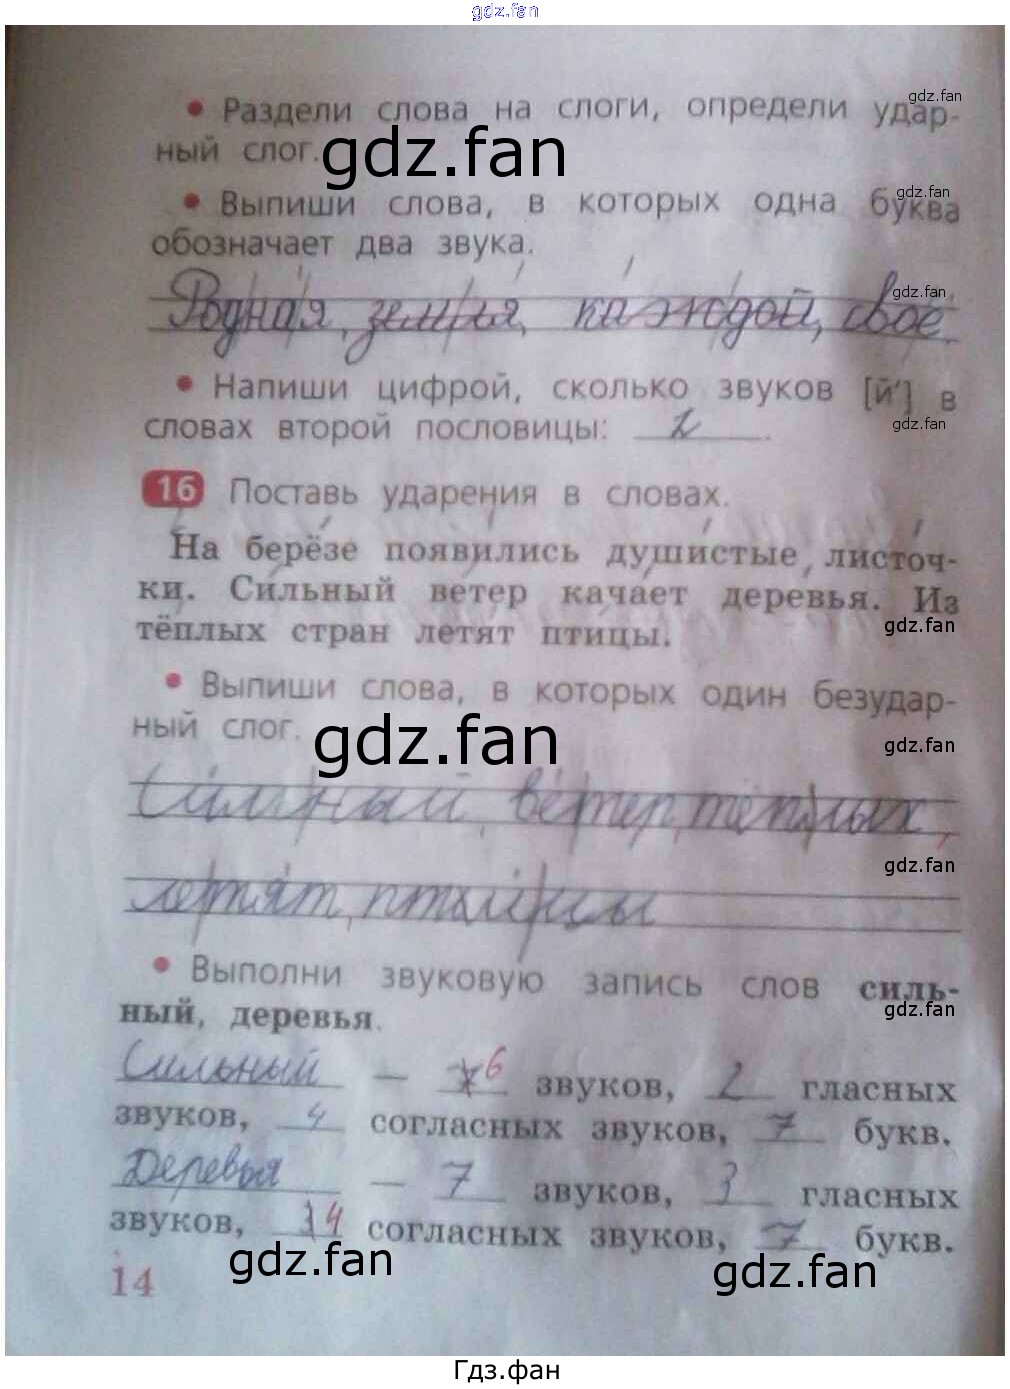 gdz.fan
• Раздели слова на слоги, определи удар-
gdz.fan
ный слог.
gdz.fan
• Выпиши слова, в которых одна буква
gdz.fan
обозначает два звука.
Родная, земля, каждой, своё.
gdz.fan
• Напиши цифрой, сколько звуков [й'] в
словах второй пословицы: 2.
gdz.fan
16 Поставь ударения в словах.
На берёзе появились душистые листоч-
ки. Сильный ветер качает деревья. Из
тёплых стран летят птицы.
gdz.fan
• Выпиши слова, в которых один безудар-
ный слог.
gdz.fan
gdz.fan
Сильный, ветер, тёплых,
gdz.fan
летят, птицы
• Выполни звуковую запись слов силь-
ный, деревья.
gdz.fan
Сильный — 6 звуков, 2 гласных
звуков, 4 согласных звуков, 7 букв.
Деревья — 7 звуков, 3 гласных
звуков, 4 согласных звуков, 7 букв.
gdz.fan
gdz.fan
14
Гдз.фан